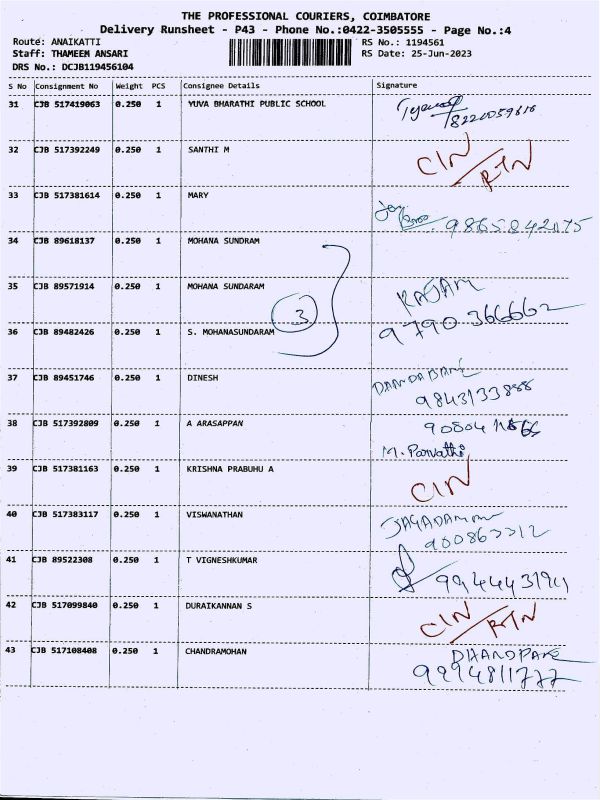 THE PROFESSIONAL COURIERS, COIMBATORE
Delivery Runsheet - P43 - Phone No.:0422-3505555 - Page No.:4
Route: ANAIKATTI
RS No.: 1194561
Staff: THAMEEM ANSARI
RS Date: 25-Jun-2023
DRS No.: DCJB119456104
S No Consignment No Weight PCS Consignee Details Signature
31 CJB 517419063 0.250 1 YUVA BHARATHI PUBLIC SCHOOL
32 CJB 517392249 0.250 1 SANTHI M CIN/RTN
33 CJB 517381614 0.250 1 MARY
9865842075
34 CJB 89618137 0.250 1 MOHANA SUNDRAM
35 CJB 89571914 0.250 1 MOHANA SUNDARAM RAJAM
3
36 CJB 89482426 0.250 1 S. MOHANASUNDARAM 9790366662
37 CJB 89451746 0.250 1 DINESH
9843133888
38 CJB 517392809 0.250 1 A ARASAPPAN
M. Parvathi
39 CJB 517381163 0.250 1 KRISHNA PRABUHU A CIN
40 CJB 517383117 0.250 1 VISWANATHAN
41 CJB 89522308 0.250 1 T VIGNESHKUMAR
42 CJB 517099840 0.250 1 DURAIKANNAN S CIN/RTN
43 CJB 517108408 0.250 1 CHANDRAMOHAN
9994811777